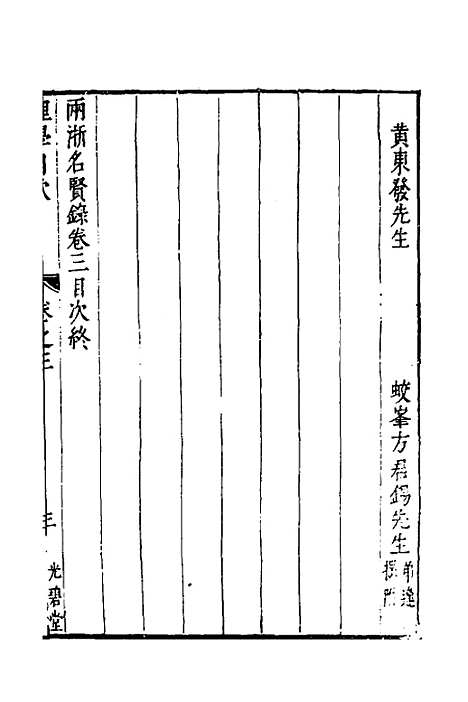 黄東發先生
蛟峯方君錫先生
兩浙名賢錄卷三目次終
卷之三
光碧堂